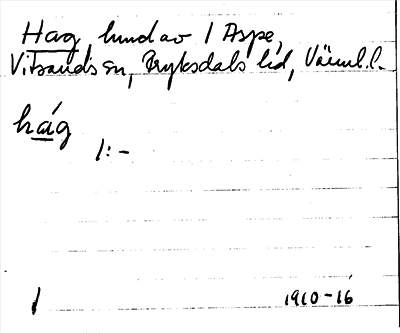 Hag lund av 1 Aspe,
Vitsands sn, Fryksdals hd, Värml. l.
hág
1:-
1 1910-16